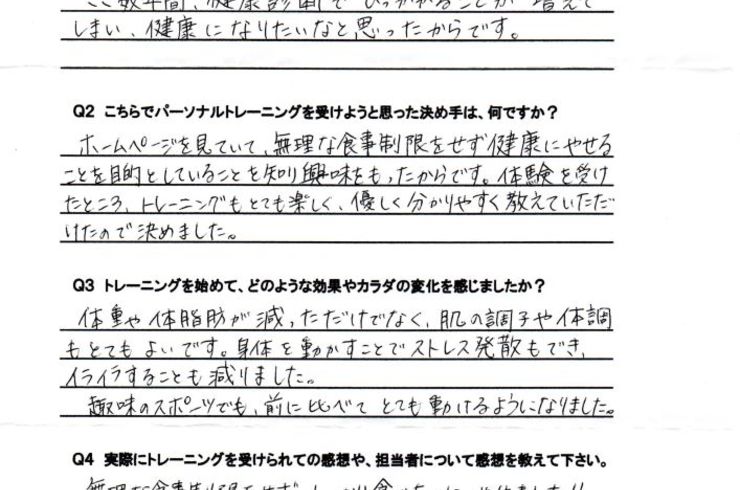 ここ数年間、健康診断でひっかかることが増えて
しまい、健康になりたいなと思ったからです。
Q2 こちらでパーソナルトレーニングを受けようと思った決め手は、何ですか？
ホームページを見ていて、無理な食事制限をせず健康にやせる
ことを目的としていることを知り興味をもったからです。体験を受け
たところ、トレーニングもとても楽しく、優しく分かりやすく教えていただ
けたので決めました。
Q3 トレーニングを始めて、どのような効果やカラダの変化を感じましたか？
体重や体脂肪が減っただけでなく、肌の調子や体調
もとてもよいです。身体を動かすことでストレス発散もでき、
イライラすることも減りました。
趣味のスポーツでも、前に比べてとても動けるようになりました。
Q4 実際にトレーニングを受けられての感想や、担当者について感想を教えて下さい。
無理な食事制限をせず